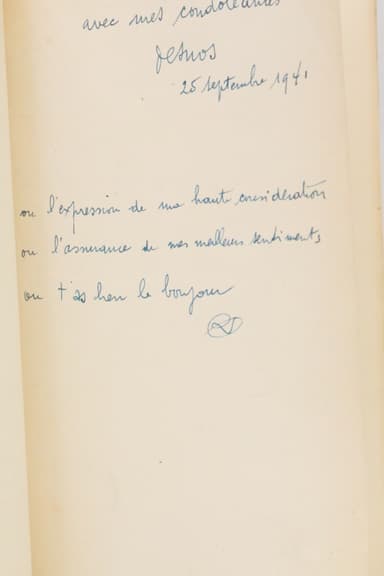 avec mes condoléances
Desnos
25 septembre 1941
ou l'expression de ma haute considération
ou l'assurance de mes meilleurs sentiments
ou t'as ben le bonjour
RD